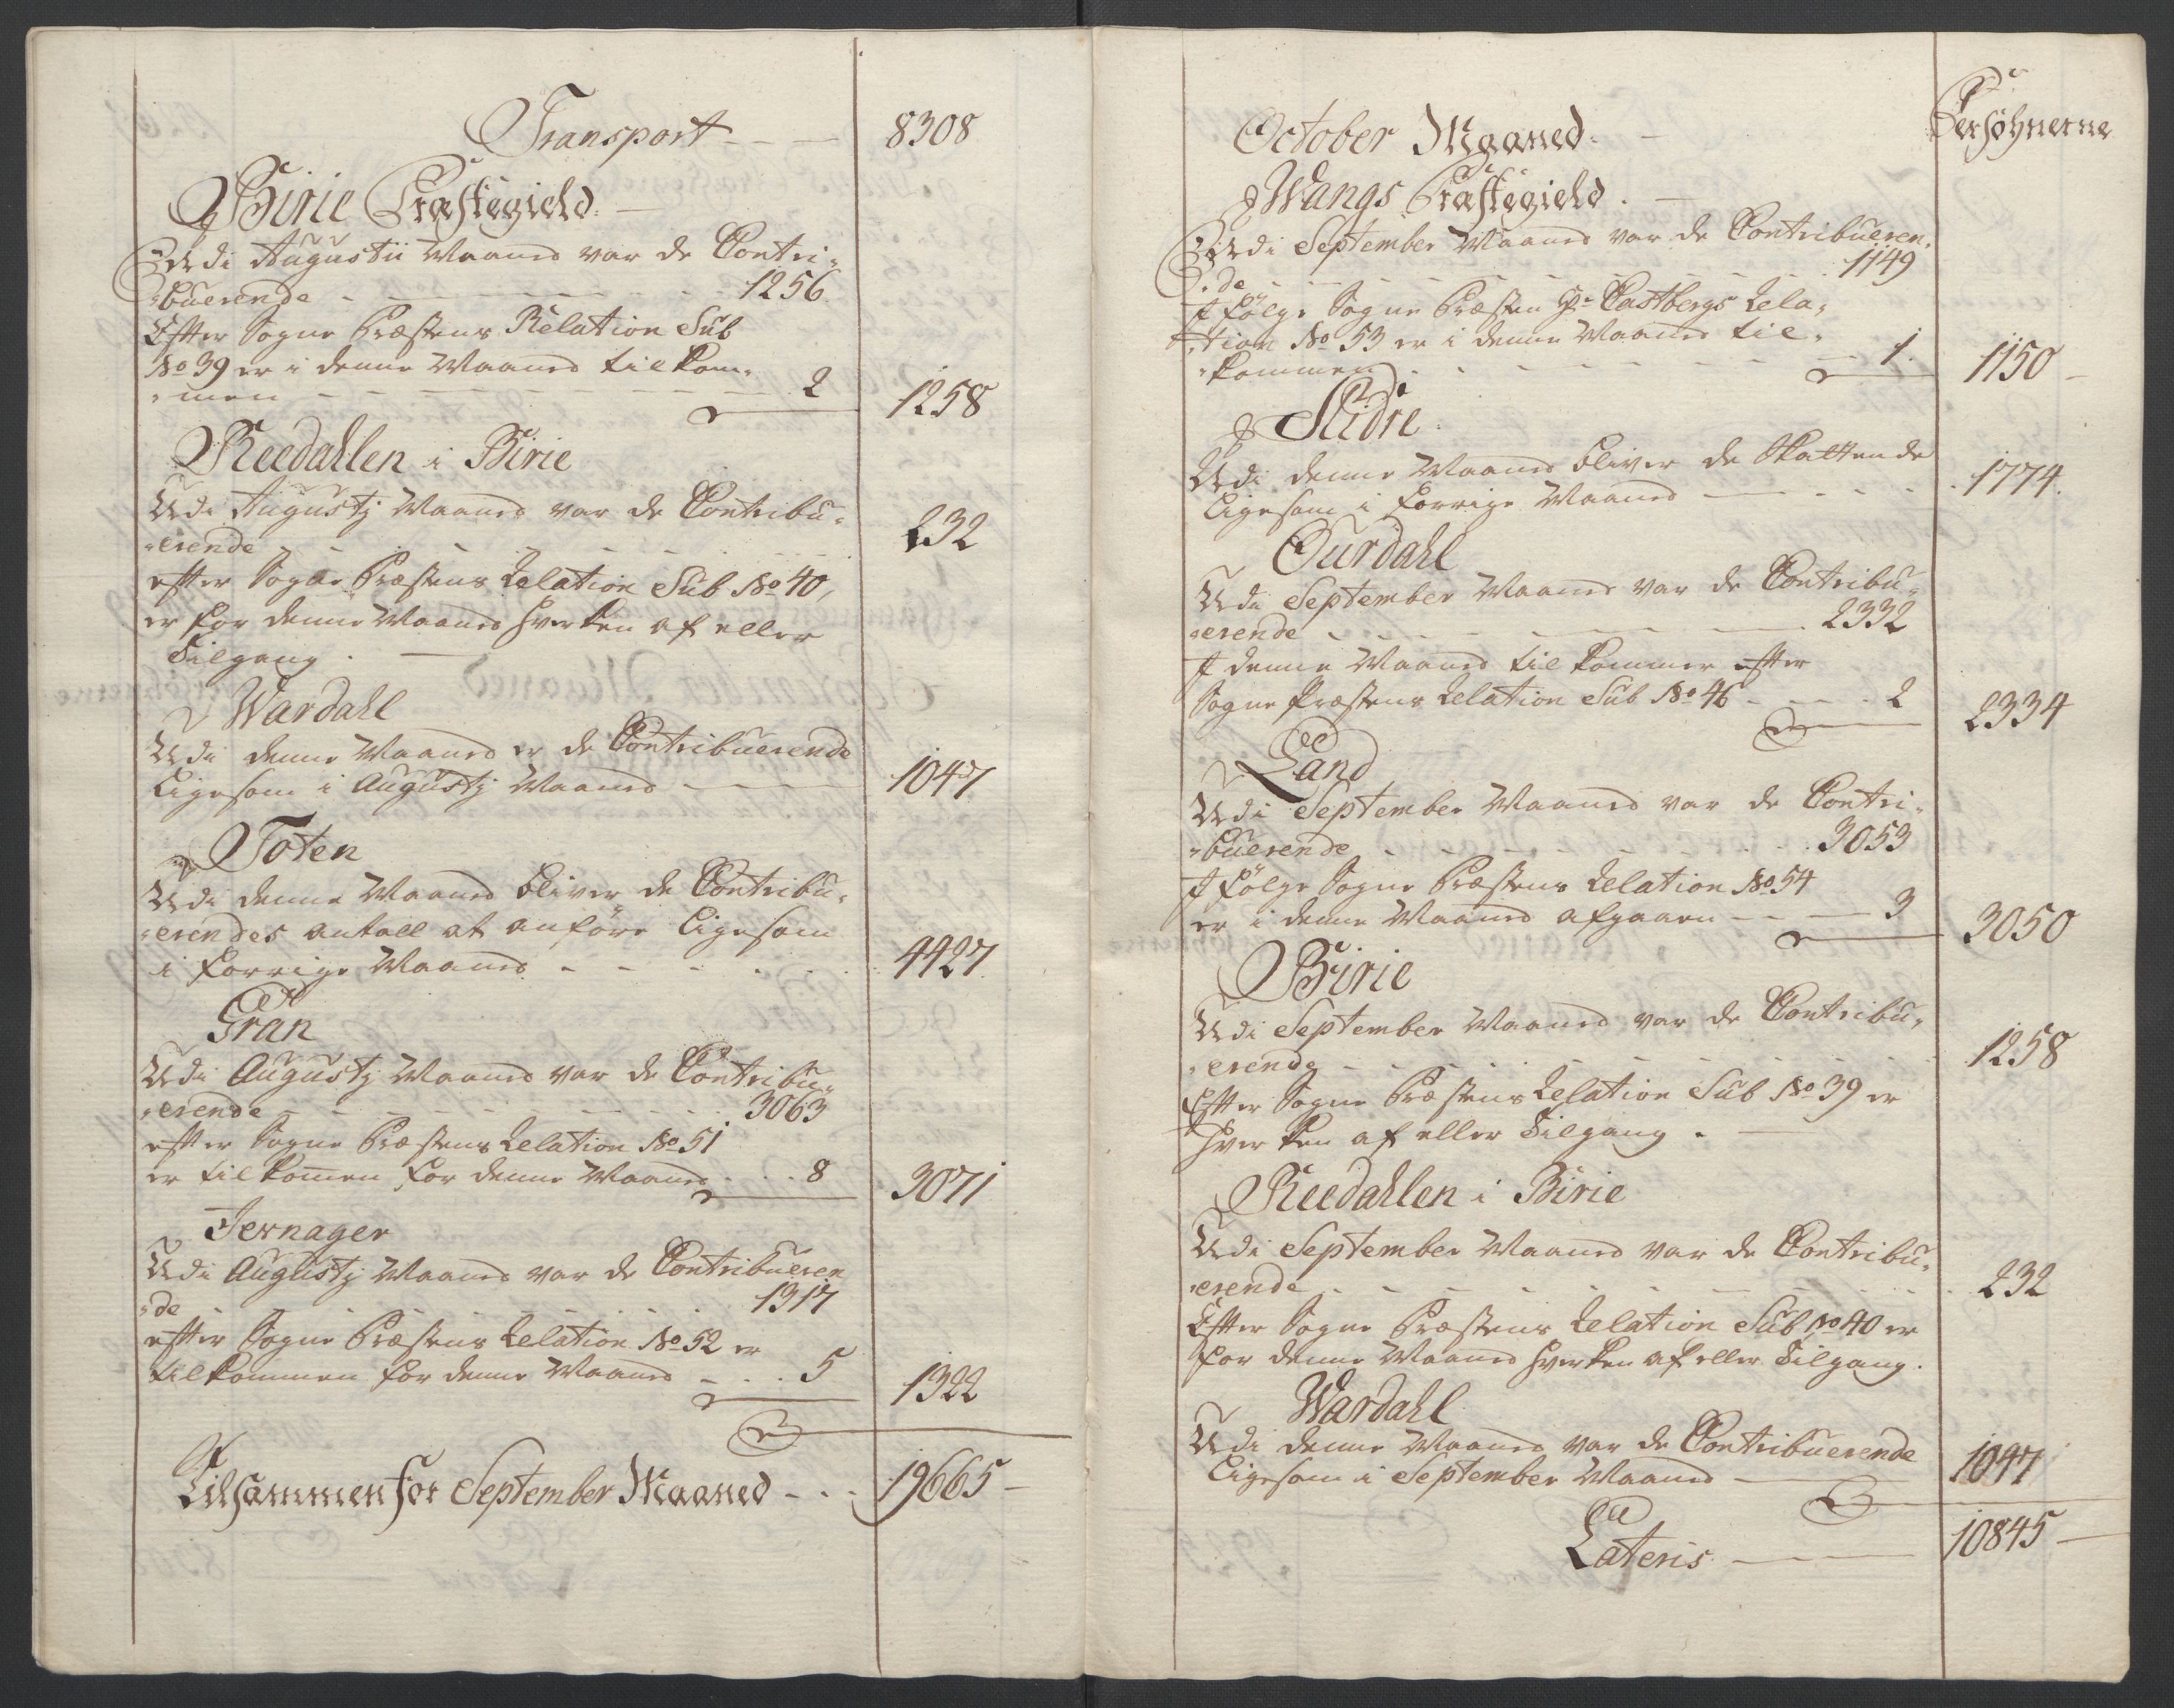 Transport - - - 8308
Birie Præstegield. -
Udi Augustii Maaned var de Contri-
buerende - - - - - - - - 1256
Efter Sogne Præstens Relation Sub
No 39 er i denne Maaned tilkom-
men - - - - - - - - 2 1258
Reedahlen i Birie
Udi Augustj Maaned var de Contribu-
erende - - - - - - - - 232
efter Sogne Præstens Relation Sub No 40,
er for denne Maaned hverken af eller
Tilgang. -
Wardahl
Udi denne Maaned er de Contribuerende
Ligesom i Augustj Maaned - - - - 1047
Toten
Udi denne Maaned bliver de Contribu-
erendes antall at anføre Ligesom
i forrige Maaned - - - - - - 4427
Gran
Udi Augustj Maaned var de Contribu-
erende - - - - - - - - 3063
efter Sogne Præstens Relation No 51
er tilkom̄en for denne Maaned - - - 8 3071
Jevnager
Udi Augustj Maaned var de Contribueren
de - - - - - - - - 1317
efter Sogne Præstens Relation No 52 er
tilkommen for denne Maaned - - - 5 1322
Tilsammen for September Maaned - - - 19665 -
Persöhnerne
October Maaned. -
Wangs Præstegield. -
Udi September Maaned var de Contribueren-
de - - - - - - - - 1149
I følge Sogne Præsten Hr Castbergs Rela-
tion No 53 er i denne Maaned til-
kommen - - - - - - - 1. 1150 -
Slidre.
Udi denne Maaned bliver de Skattende
Ligesom i forrige Maaned - - - - - 1774.
Ourdahl
Udi September Maaned var de Contribu-
erende - - - - - - - - 2332
I denne Maaned tilkommer efter
Sogne Præstens Relation Sub No 46 - - - - 2 2334
Land
Udi September Maaned var de Contri-
buerende - - - - - - - - 3053
I følge Sogne Præstens Relation No 54
er i denne Maaned afgaaen - - - 3 3050
Birie
Udi September Maaned var de Contribu-
erende - - - - - - - - 1258
Efter Sogne Præstens Relation Sub No 39 er
hverken af eller Tilgang. -
Reedahlen i Birie
Udi September Maaned var de Contribu-
erende - - - - - - - - 232
Efter Sogne Præstens Relation Sub No 40 er
for denne Maaned hverken af eller Tilgang.
Wardahl
Udi denne Maaned var de Contribuerende
Ligesom i September Maaned - - 1047
Lateris - - - 10845 -